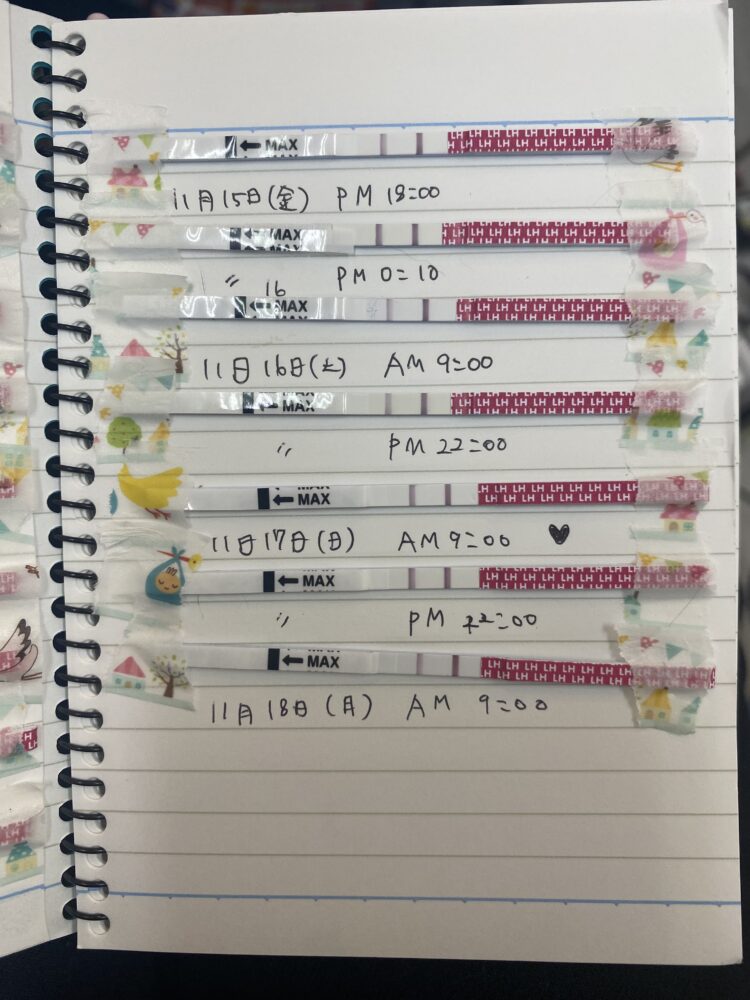 ← MAX LH LH LH LH LH LH LH LH
11月15日(金) PM 18:00
← MAX LH LH LH LH LH LH LH LH
〃 16 PM 0:10
← MAX LH LH LH LH LH LH LH LH
11日16日(土) AM 9:00
← MAX LH LH LH LH LH LH LH LH
〃 PM 22:00
← MAX LH LH LH LH LH LH LH LH
11日17日(日) AM 9:00 ♥
← MAX LH LH LH LH LH LH LH LH
〃 PM 22:00
← MAX LH LH LH LH LH LH LH LH
11月18日(月) AM 9:00